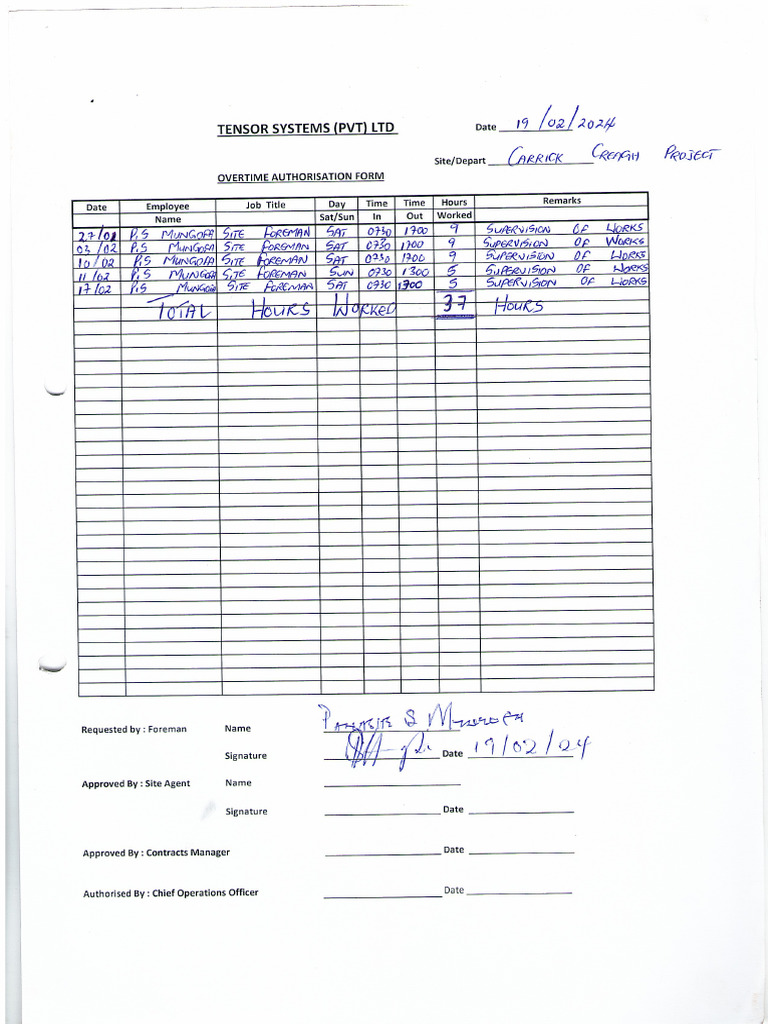 TENSOR SYSTEMS (PVT) LTD
Date 19/02/2024
Site/Depart CARRICK CREAGH PROJECT
OVERTIME AUTHORISATION FORM
Date Employee Name Job Title Day Sat/Sun Time In Time Out Hours Worked Remarks
27/01 P.S MUNGOFA SITE FOREMAN SAT 0730 1700 9 SUPERVISION OF WORKS
03/02 P.S MUNGOFA SITE FOREMAN SAT 0730 1700 9 SUPERVISION OF WORKS
10/02 P.S MUNGOFA SITE FOREMAN SAT 0730 1700 9 SUPERVISION OF WORKS
11/02 P.S MUNGOFA SITE FOREMAN SUN 0730 1300 5 SUPERVISION OF WORKS
17/02 P.S MUNGOFA SITE FOREMAN SAT 0730 1300 5 SUPERVISION OF WORKS
TOTAL HOURS WORKED 37 HOURS
Requested by : Foreman Name S
Signature Date 19/02/24
Approved By : Site Agent Name
Signature Date
Approved By : Contracts Manager Date
Authorised By : Chief Operations Officer Date